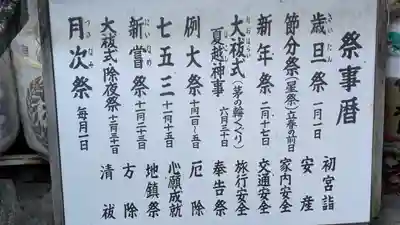 祭事暦
歳旦祭 さいたん 一月一日
節分祭(星祭) 立春の前日
新年祭 二月十七日
大祓式(茅の輪くぐり) おおはらい
夏越神事 六月三十日
例大祭 十月四日〜五日
七五三 十一月十五日
新嘗祭 にいなめ 十一月二十三日
大祓式除夜祭 十二月三十一日
月次祭 つきなみ 毎月一日
初宮詣
安産
家内安全
交通安全
旅行安全
奉告祭
厄除
心願成就
地鎮祭
方除
清祓